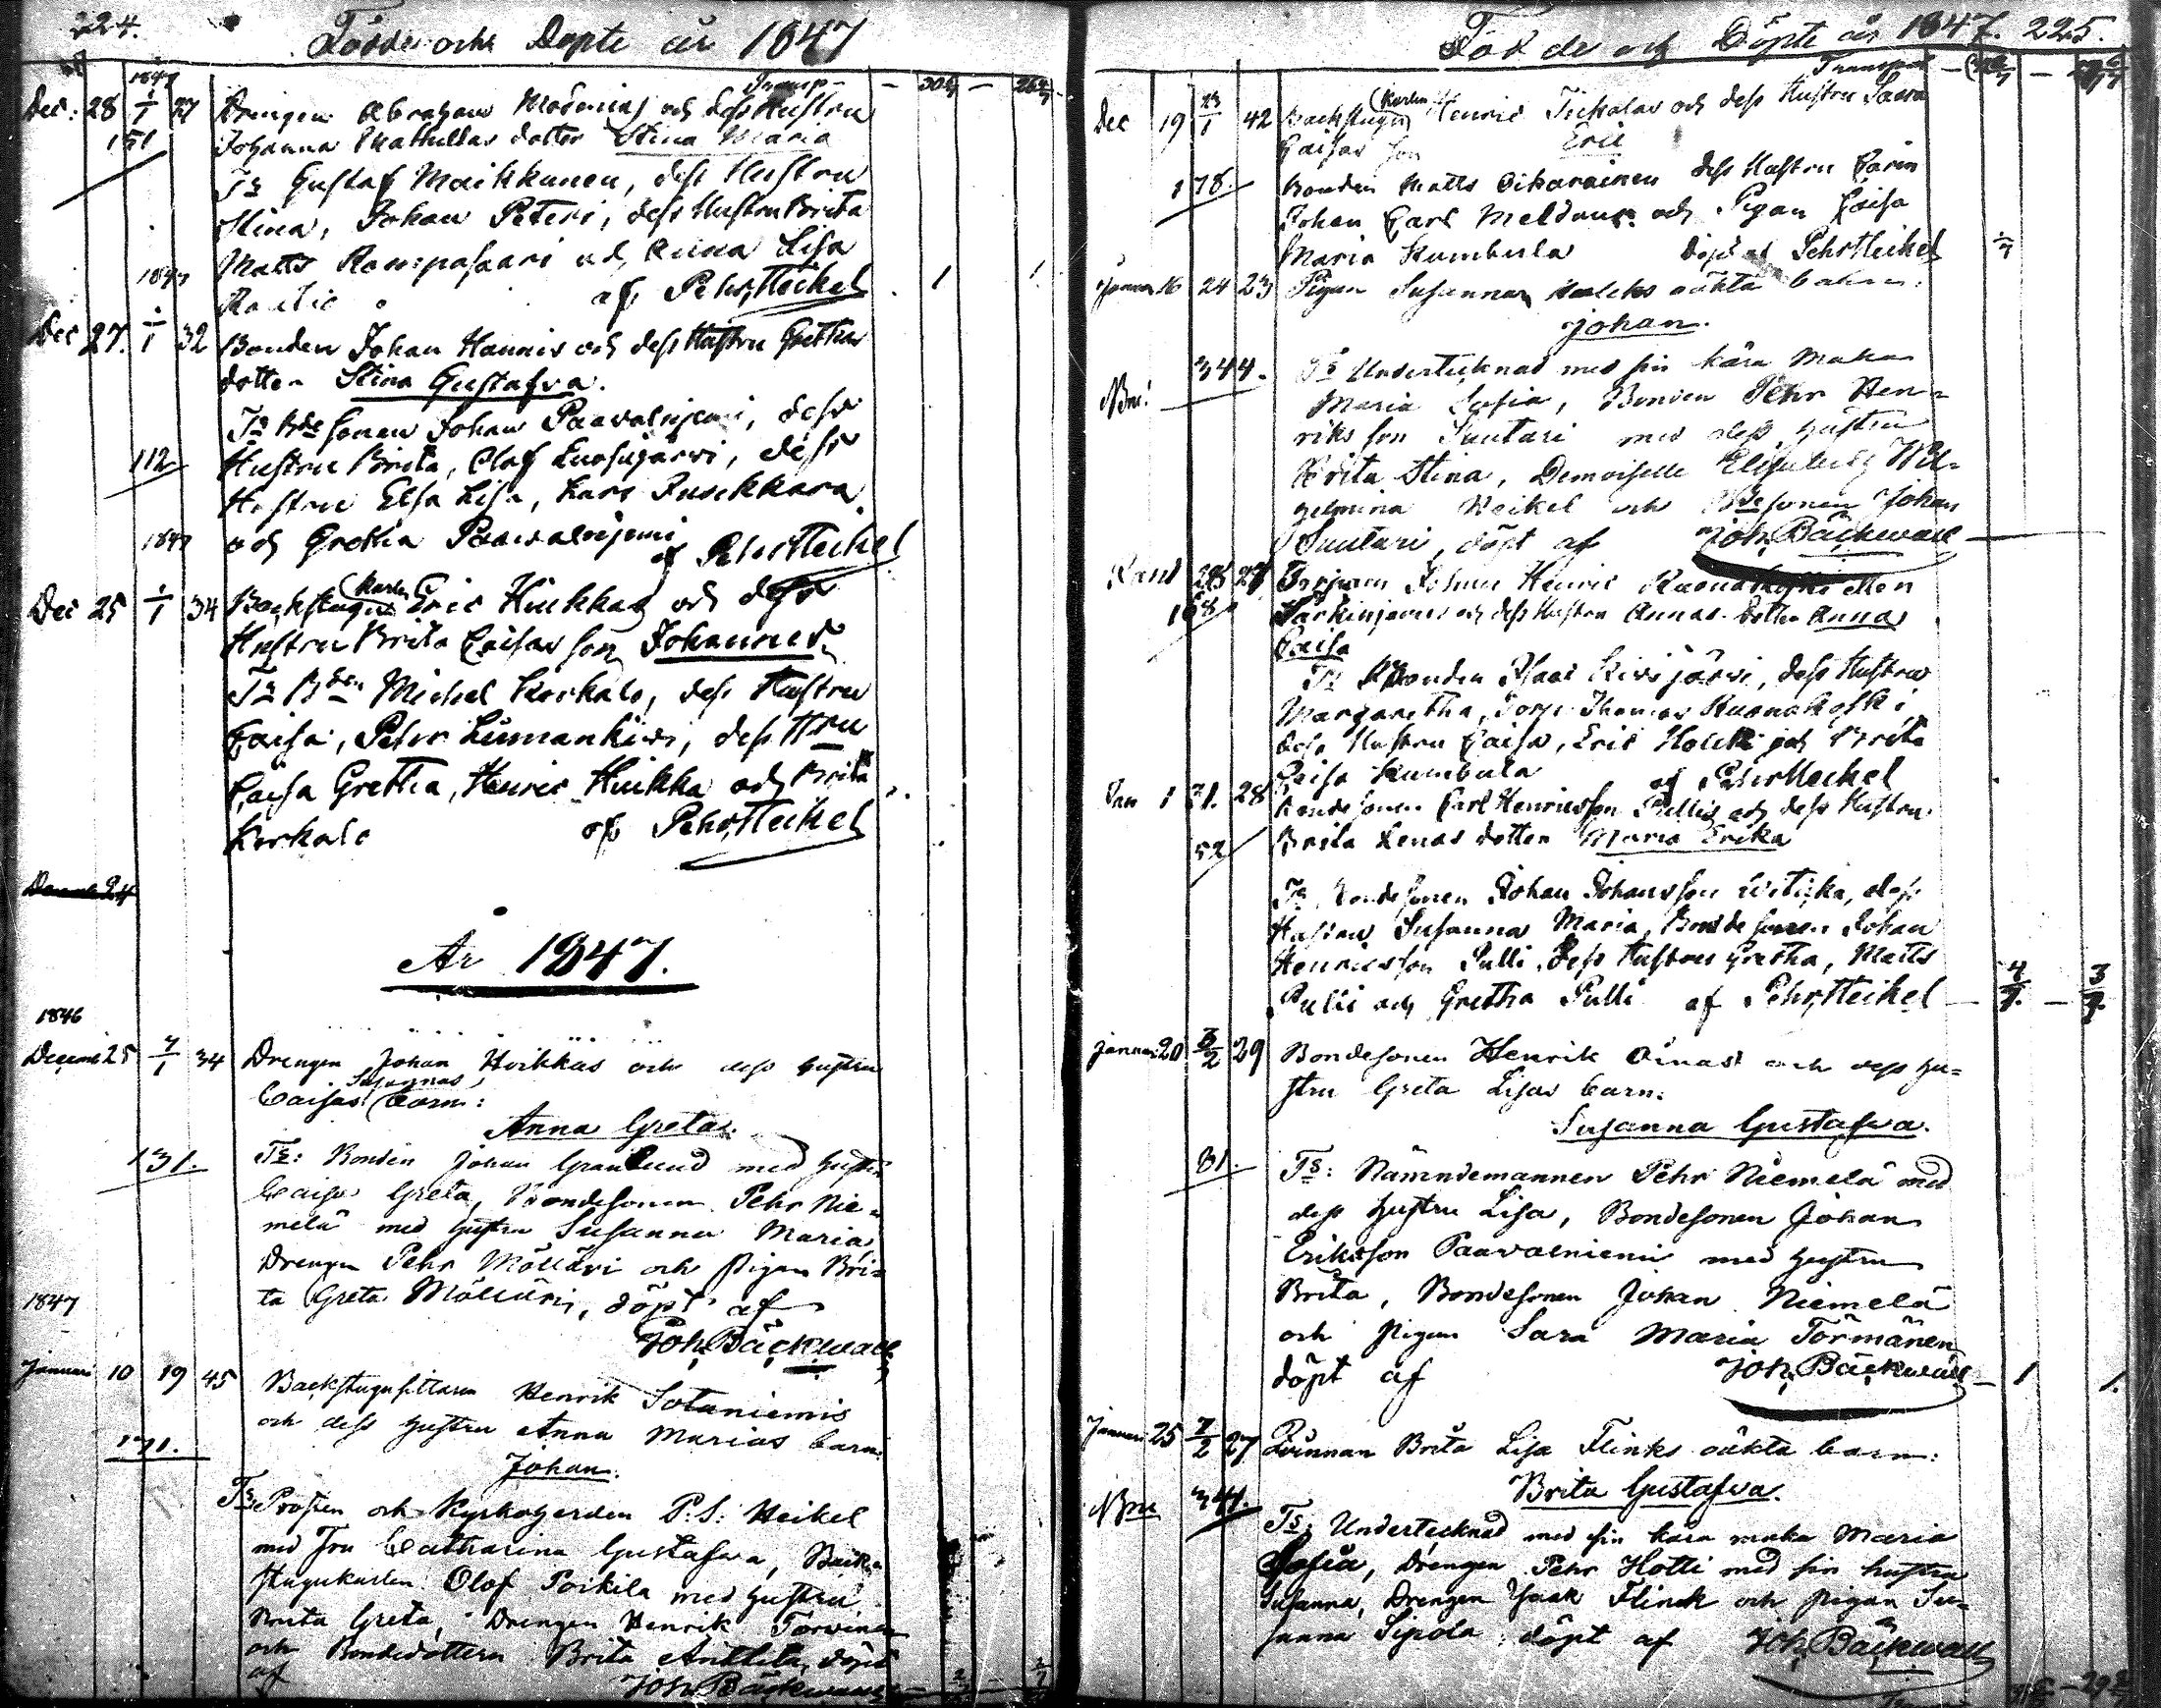 224.
Födde och Döpte år 1847
1847 Transp
Dec: 28 1/1 27 Drengen Abraham och dess Hustru
151 Johanna dotter Stina Maria
Ts Gustaf Maikkunen, dess Hustru
Stina, Johan Peteri, dess Hustru Brita
Matts och Anna Lisa
1847 af Pehr Heikel 1 1
Dec 27. 1/1 32 Bonden Johan Hannis och dess Hustru Grethas
dotter Stina Gustafva.
Ts Bde sonen Johan Paavalniemi, dess
112 Hustru Brita, Olof dess
Hustru Elsa Lisa, Lars
1847 och Gretha Paavalniemi af Pehr Heikel
Dec 25 1/1 34 Backstugu Karlen Eric Huikkas och dess
Hustru Brita Caisas son Johannes
Ts Bden Michel Korkalo, dess Hustru
Caisa, Pehr Liimankivi, dess Hru
Caisa Gretha, Henric Huikka och Brita
Korkalo af Pehr Heikel
24
År 1847.
1846
Decemb 25 7/1 34 Drengen Johan Huikkas och dess hustru
Caisas Susannas barn:
Anna Greta.
131. Ts: Bonden Johan Granlund med hustru
Caisa Greta, Bondesonen Pehr Nie-
melä med hustru Susanna Maria
Drengen Pehr Mölläri och pigan Bri-
ta Greta Mölläri, döpt af
1847
Joh. Bäckwall
Januari 10 19 45 Backstugusittaren Henrik Sotaniemis
och dess hustru Anna Marias barn
171.
Johan.
Ts Prosten och Kyrkoherden P. S: Heikel
med Fru Catharina Gustafva, Back-
stugukarlen Olof Poikila med hustru
Brita Greta, Drengen Henrik Torvinen
och Bondedottern Brita Anttila, döpt
af Joh Bäckwall
Födde och Döpte år 1847. 225.
Transport
Dec 19 23/1 42 Backstugu Karlen Henric och dess Hustru
Caisas son Eric
178. Bonden Matts Oikarainen dess Hustru Carin
Johan Carl och Pigan Caisa
Maria Kumbula döpt af Pehr Heikel
Januar 16 24 23 Pigan Susanna oäkta barn:
Johan.
344. Ts Undertecknad med sin kära maka
Maria Sofia, Bonden Pehr Hen-
riksson Suutari med dess hustru
Brita Stina, Demoiselle Elisabeth Wil-
helmina Heikel och Bdesonen Johan
Suutari, döpt af Joh. Bäckwall
28 27 Torparen Johan Henric
168 Särkiniemi och dess Hustru Annas dotter Anna
Caisa
Ts Bonden Isaac Kivijärvi, dess Hustru
Margaretha, Torp. Thomas Ruonakoski
dess Hustru Caisa, Eric och Brita
Caisa Kumbula af Pehr Heikel
Jan 1 31. 28 Bondesonen Carl Henricsson Pullis och dess Hustru
52 Brita Lenas dotter Maria Erika
Ts Bondesonen Johan Johansson dess
Hustru Susanna Maria, Bondesonen Johan
Henricsson Pulli, dess Hustru Gretha, Matts
Pulli och Gretha Pulli af Pehr Heikel 4/7. 3/7.
Januari 20 3/2 29 Bondesonen Henrik Oinas och dess hu-
stru Greta Lisas barn:
Susanna Gustafva.
81. Ts: Nämndemannen Pehr Niemelä med
dess hustru Lisa, Bondesonen Johan
Eriksson Paavalniemi med hustru
Brita, Bondesonen Johan Niemelä
och pigan Sara Maria Törmänen
döpt af Joh. Bäckwall 1 1.
Januari 25 7/2 27 Qvinnan Brita Lisa Flinks oäkta barn:
Brita Gustafva.
344. Ts: Undertecknad med sin kära maka Maria
Sofia, Drengen Pehr Hotti med sin hustru
Susanna, Drengen Isaak Flinck och pigan Su-
sanna Sipola döpt af Joh. Bäckwall